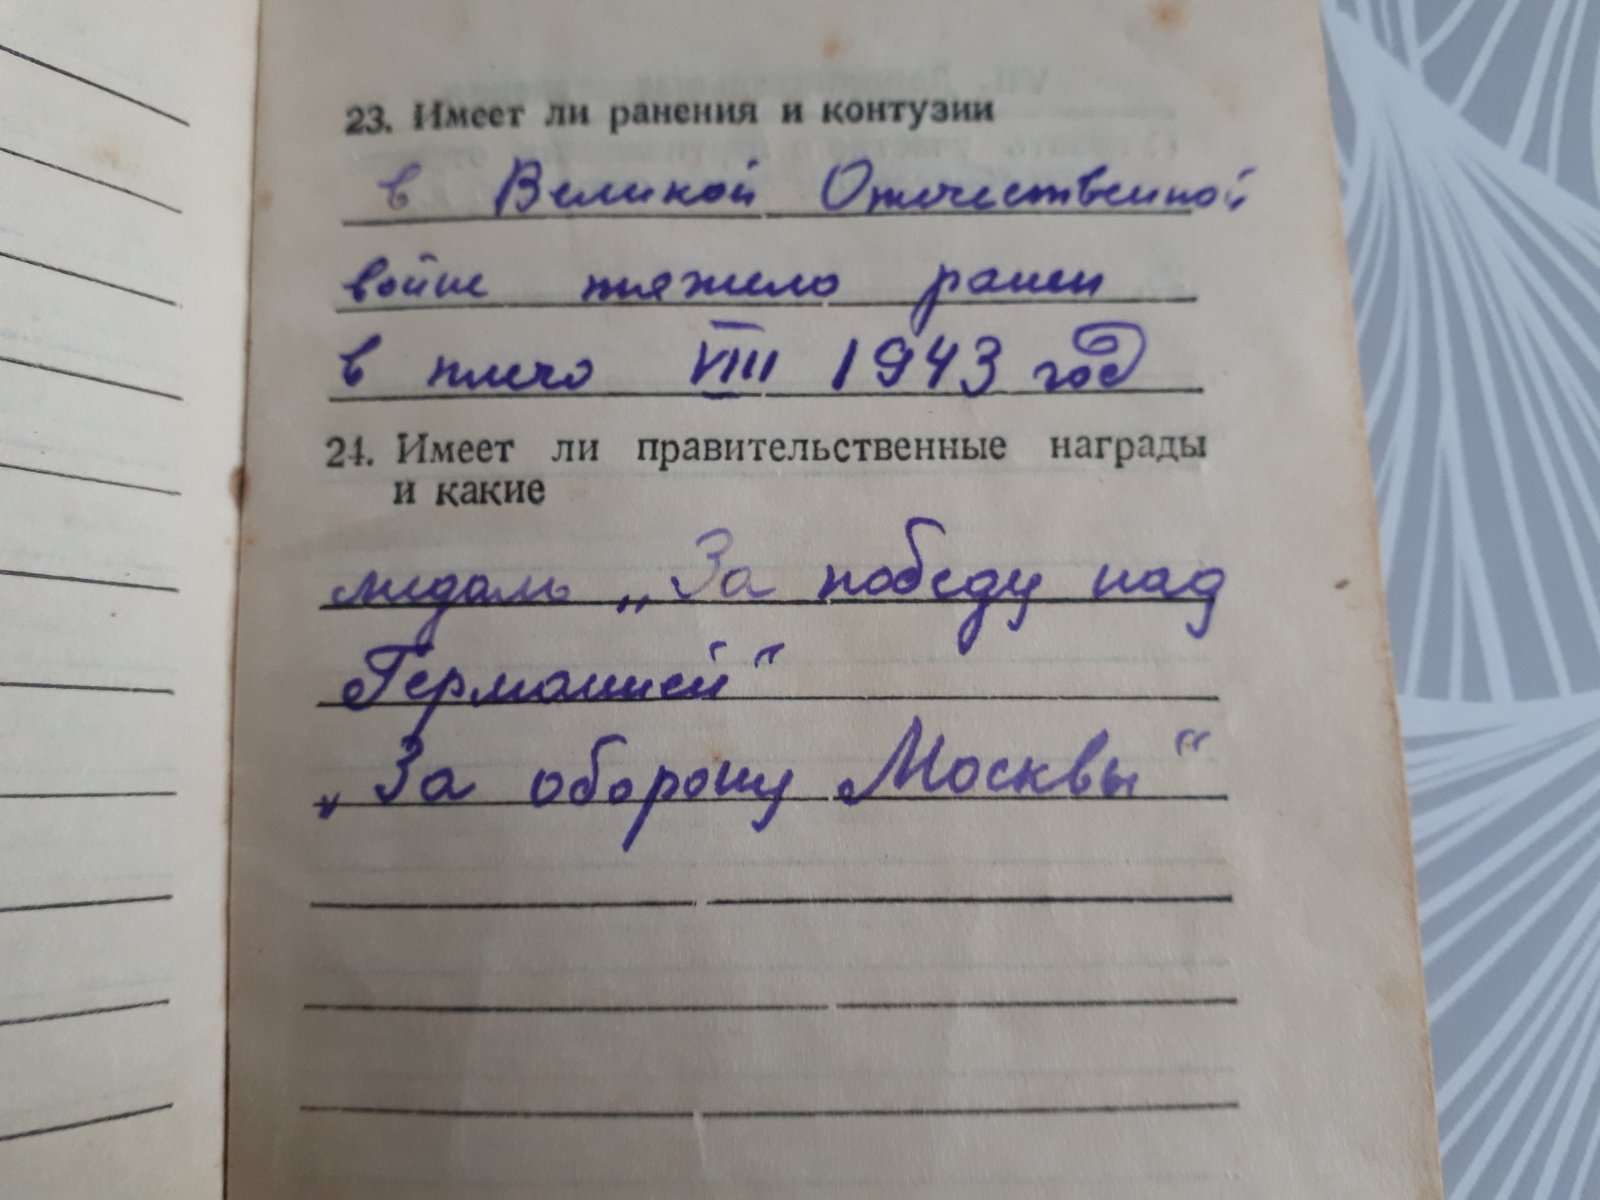 23. Имеет ли ранения и контузии
в Великой Отечественной
войне тяжело ранен
в плечо VIII 1943 год
24. Имеет ли правительственные награды
и какие
медаль „За победу над
Германией“
„За оборону Москвы“